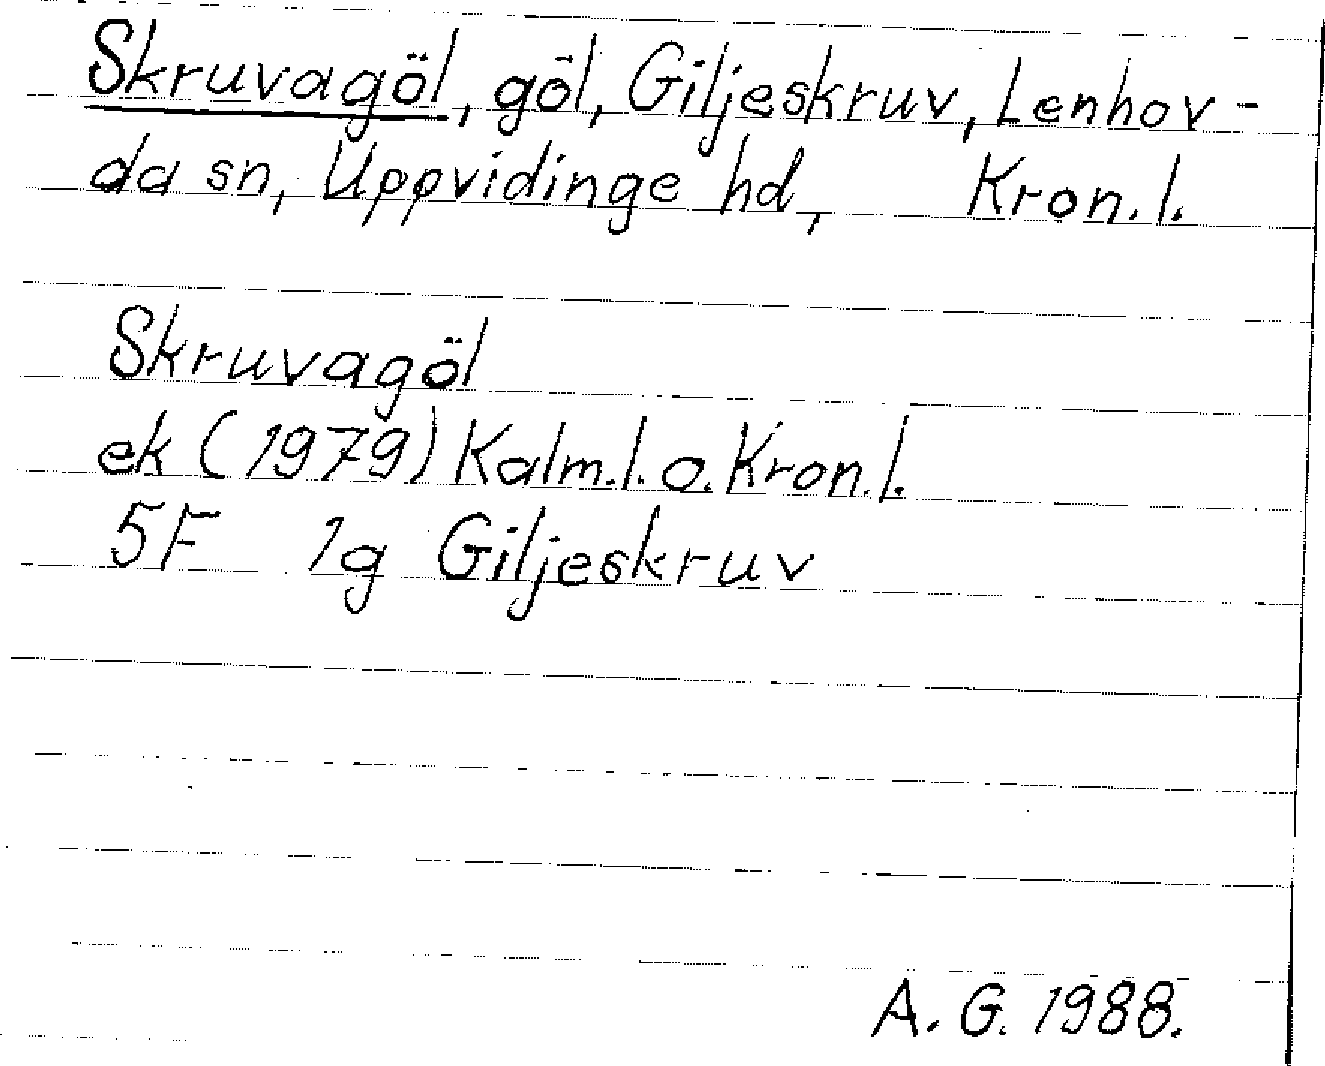 Skruvagöl, göl, Giljeskruv, Lenhov-
da sn, Uppvidinge hd, Kron.l.
Skruvagöl
ek (1979) Kalm.l. o. Kron.l.
5F 1g Giljeskruv
A. G. 1988.